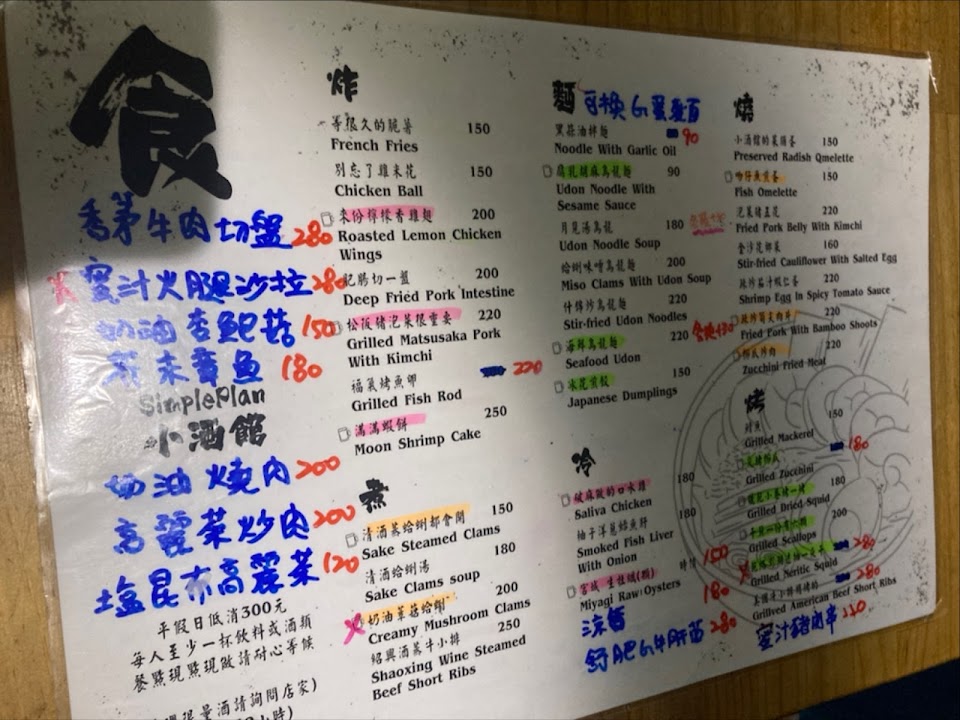 食
香茅牛肉切盤 280
蜜汁火腿沙拉 280
奶油杏鮑菇 150
章魚 180
SimplePlan
小酒館
奶油燒肉 200
高麗菜炒肉 200
塩昆布高麗菜 120
平假日低消300元
每人至少一杯飲料或酒類
餐點現點現做請耐心等候
限量酒請詢問店家)
炸
等很久的脆薯 150
French Fries
別忘了雞米花 150
Chicken Ball
來份檸檬香雞翅 200
Roasted Lemon Chicken
Wings
肥腸切一盤 200
Deep Fried Pork Intestine
松阪豬泡菜很重要 220
Grilled Matsusaka Pork
With Kimchi
福氣烤魚卵 220
Grilled Fish Rod
滿滿蝦餅 250
Moon Shrimp Cake
煮
清酒蒸蛤蜊都會開 150
Sake Steamed Clams
清酒蛤蜊湯 180
Sake Clams soup
奶油蘑菇蛤蜊 200
Creamy Mushroom Clams
紹興酒蒸牛小排 250
Shaoxing Wine Steamed
Beef Short Ribs
麵 可換
黑蒜油拌麵 90
Noodle With Garlic Oil
腐乳胡麻烏龍麵 90
Udon Noodle With
Sesame Sauce
月見湯烏龍 180
Udon Noodle Soup
蛤蜊味噌烏龍麵 200
Miso Clams With Udon Soup
什錦炒烏龍麵 220
Stir-fried Udon Noodles
海鮮烏龍麵 220
Seafood Udon
冰花煎餃 150
Japanese Dumplings
冷
破麻酸的口味雞 180
Saliva Chicken
柚子洋蔥鱈魚肝 180
Smoked Fish Liver
With Onion
宮城生牡蠣(顆) 時價 150
Miyagi Raw Oysters 180
涼皙
舒肥牛肝 280
燒
小酒館的菜脯蛋 150
Preserved Radish Qmelette
吻仔魚煎蛋 150
Fish Omelette
泡菜豬五花 220
Fried Pork Belly With Kimchi
金沙花椰菜 160
Stir-fried Cauliflower With Salted Egg
辣炒茄汁蝦仁蛋 220
Shrimp Egg In Spicy Tomato Sauce
辣炒筍尖肉片 220
Fried Pork With Bamboo Shoots
櫛瓜炒肉 220
Zucchini Fried Meat
烤
鯖魚 150
Grilled Mackerel
180
Grilled Zucchini
180
Grilled Dried Squid
200
Grilled Scallops
280
Grilled Neritic Squid
美國牛小排烤烤的 280
Grillved American Beef Short Ribs
蜜汁豬肉串 250